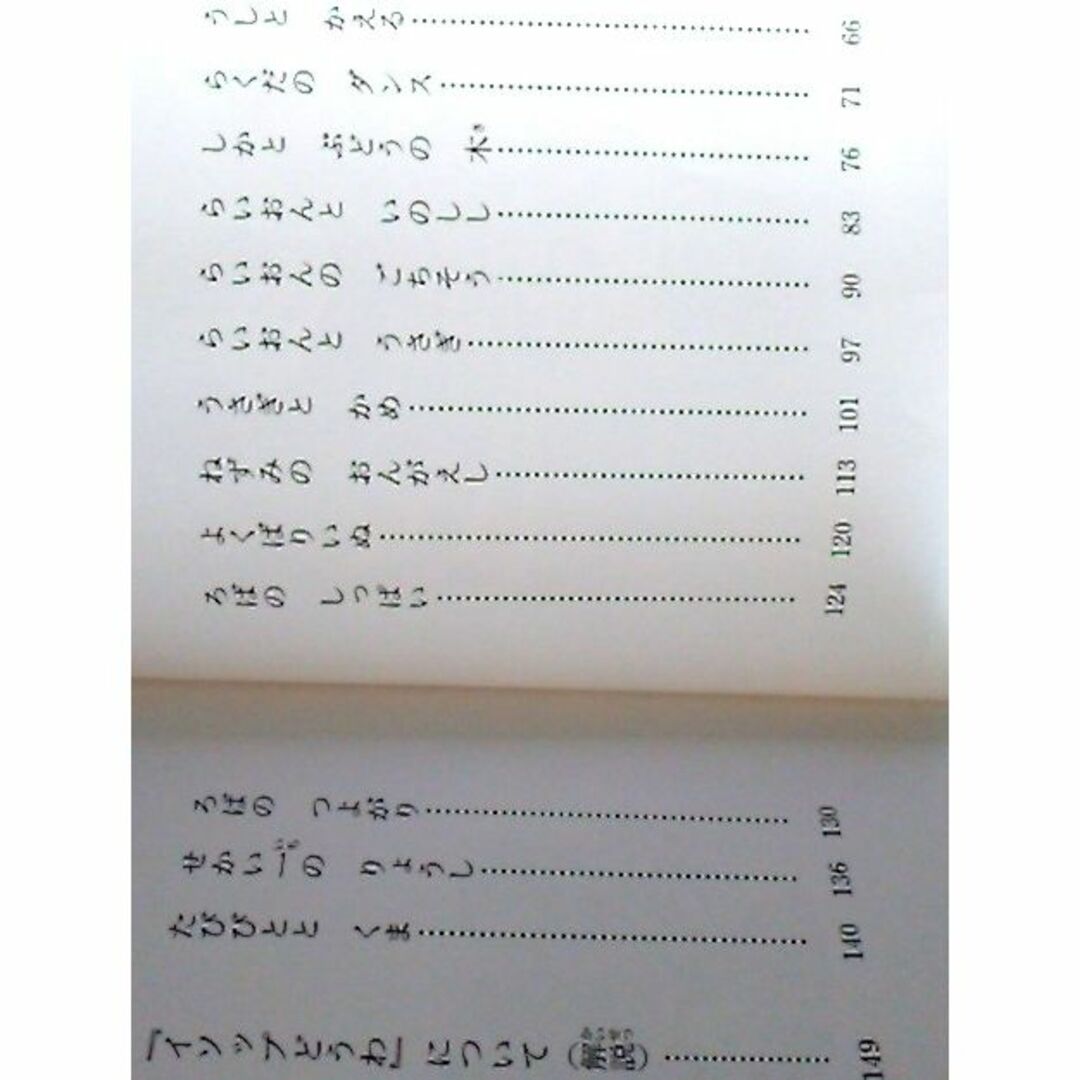 うしと かえる……66
らくだの ダンス……71
しかと ぶどうの 木……76
らいおんと いのしし……83
らいおんの ごちそう……90
らいおんと うさぎ……97
うさぎと かめ……101
ねずみの おんがえし……113
よくばりいぬ……120
ろばの しっぽい……124
ろばの つよがり……130
せかい一の りょうし……136
たびびとと くま……140
「イソップどうわ」について(解説)……149